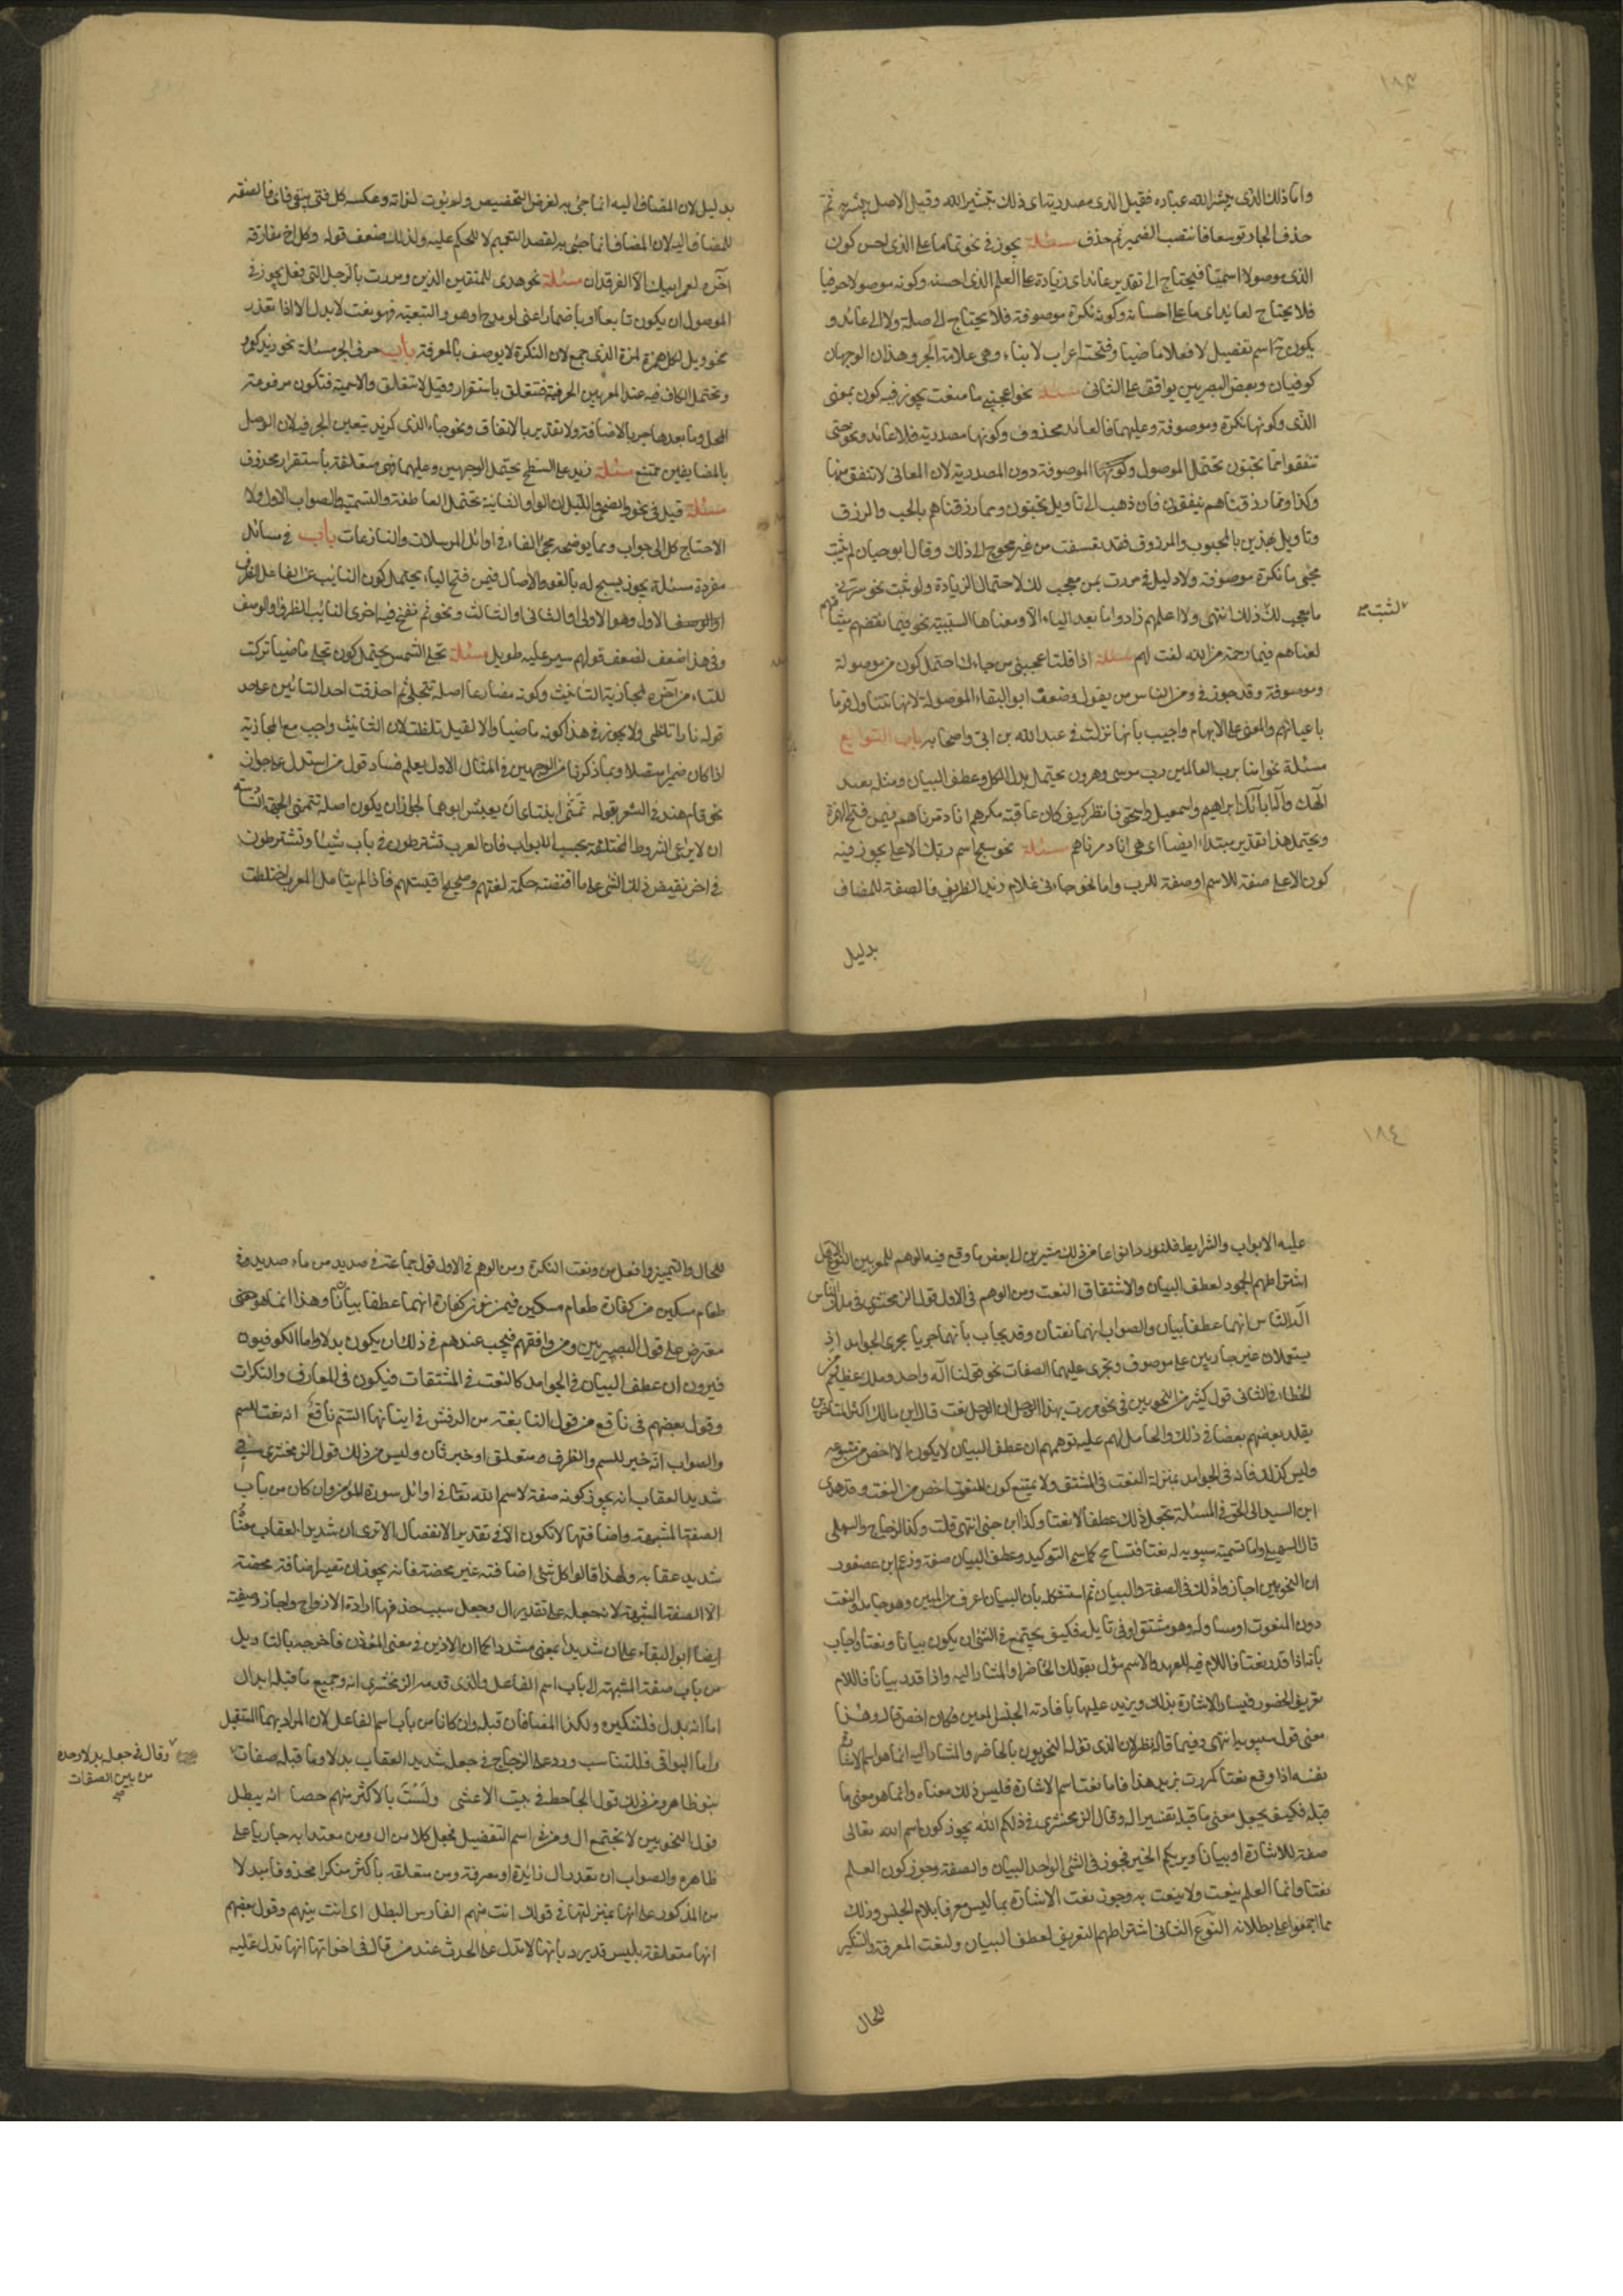 ١٨٣
واما ذلك الذى يبشر الله عباده فقيل الذى مصدرية اى ذلك تبشير الله وقيل الاصل يبشر به ثم
حذف الجار توسعا فانتصب الضمير ثم حذف مسئلة يجوز فى نحو تماما على الذى احسن كون
الذى موصولا اسميا فيحتاج الى تقدير عائد اى زيادة على العلم الذى احسنه وكونه موصولا حرفيا
فلا يحتاج لعائد اى تماما على احسانه وكونه نكرة موصوفة فلا يحتاج الى صلة ولا الى عائد و
يكون ح اسم تفضيل لا فعلا ماضيا وفتحته اعراب لا بناء وهى علامة الجر وهذان الوجهان
كوفيان وبعض البصريين يوافق على الثانى مسئلة نحو اعجبنى ما صنعت يجوز فيه كون بمعنى
الذى وكونها نكرة وموصوفة وعليهما فالعائد محذوف وكونها مصدرية فلا عائد ونحو حتى
تنفقوا مما تحبون تحتمل الموصول وكونها الموصوفة دون المصدرية لان المعانى لا تنفق منها
وكذا ومما رزقناهم ينفقون فان ذهب الى تاويل تحبون ومما رزقناهم بالحب والرزق
وتاويل هذين بالمحبوب والمرزوق فقد تعسفت من غير محوج الى ذلك وقال ابو حيان لم يثبت
مجئ ما نكرة موصوفة ولا دليل فى مررت بمن معجب لك لاحتمال الزيادة ولو ثبت نحو سرنى
ما معجب لك لثبت ذلك انتهى ولا اعلمهم زادوا ما بعد الباء الا ومعناها السببية نحو فبما نقضهم ميثاقهم
لعناهم فبما رحمة من الله لنت لهم مسئلة اذا قلت اعجبنى من جاءك احتمل كون من موصولة
وموصوفة وقد جوز فى ومن الناس من يقول وضعف ابو البقاء الموصولة لانها تتناول قوما
باعيانهم والمعنى على الابهام واجيب بانها نزلت فى عبد الله بن ابى واصحابه باب التوابع
مسئلة نحو امنا برب العالمين رب موسى وهرون يحتمل بدل الكل وعطف البيان ومثله نعبد
الهك واله ابائك ابراهيم واسمعيل واسحق فانظر كيف كان عاقبة مكرهم انا دمرناهم فيمن فتح الهمزة
ويحتمل هذا تقدير مبتداء ايضا اى هى انا دمرناهم مسئلة نحو سبح اسم ربك الاعلى يجوز فيه
كون الاعلى صفة للاسم او صفة للرب واما نحو جاءنى غلام زيد الظريف فالصفة للمضاف
بدليل
بدليل لان المضاف اليه انما جئ به لغرض التخصيص ولم يؤت لذاته وعكسه كل فتى يتقى فائز فالصفة
للمضاف اليه لان المضاف انما جئ به لقصد التعميم لا للحكم عليه ولذلك ضعف قوله وكل اخ مفارقه
اخره لعمر ابيك الا الفرقدان مسئلة نحو هدى للمتقين الذين ومررت بالرجل الذى فعل يجوز فى
الموصول ان يكون تابعا او باضمار اعنى او امدح او هو والتبعية فهو نعت لا بدل الا اذا تعذر
نحو ويل لكل همزة لمزة الذى جمع لان النكرة لا يوصف بالمعرفة باب حرف الجر مسئلة نحو زيد كعمرو
وتحتمل الكاف فيه عند المعربين الحرفية فتتعلق باستقرار وقيل لا تتعلق والاسمية فتكون مرفوعة
المحل وما بعدها جر بالاضافة ولا تقدير بالاتفاق ونحو جاء الذى كزيد يتعين الحرفية لان الوصل
بالمضايفين ممتنع مسئلة زيد على السطح يحتمل الوجهين وعليهما فهى متعلقة باستقرار محذوف
مسئلة قيل فى نحو والضحى والليل ان الواو الثانية تحتمل العاطفة والقسمية والصواب الاول والا
لاحتاج كل الى جواب ومما يوضحه مجئ الفاء فى اوائل المرسلات والنازعات باب فى مسائل
مفردة مسئلة يجوز يسبح له بالغدو والاصال فيمن فتح الباء يحتمل كون النائب عن الفاعل الظرف
او الوصف الاول وهو الاولى او الثانى او الثالث ونحو ثم نفخ فيه اخرى النائب الظرف او الوصف
وفى هذا ضعف لضعف قولهم سير عليه طويل مسئلة تجلى الشمس يحتمل كون تجلى ماضيا تركت
للتاء من اخره لمجازية التانيث وكونه مضارعا اصله تتجلى ثم احذفت احد التائين على حد
قوله نارا تلظى ولا يجوز فى هذا كونه ماضيا والا لقيل تلظت لان التانيث واجب مع المجازية
اذا كان ضميرا متصلا وبما ذكرنا من الوجهين فى المثال الاول يعلم فساد قول من استدل على جواز
نحو قام هند فى الشعر بقوله تمنى ابنتاى ان يعيش ابوهما لجواز ان يكون اصله تتمنى الجهة السادسة
ان لا يراعى الشروط المختلفة بحسب الابواب فان العرب تشترطون فى باب شيئا وتشترطون
فى اخر نقيض ذلك الشئ على ما اقتضته حكمة لغتهم وصحيح اقيستهم فاذا لم يتامل المعرب اختلطت
١٨٤
عليه الابواب والشرايط فلنورد انواعا من ذلك مشيرين الى بعض ما وقع فيه الوهم للمعربين النوع الاول
اشتراطهم الجمود لعطف البيان والاشتقاق النعت ومن الوهم فى الاول قول الزمخشرى فى ملك الناس
اله الناس انهما عطفا بيان والصواب انهما نعتان وقد يجاب بانهما جريا مجرى الجوامد اذ
يستعملان غير جاريين على موصوف وتجرى عليهما الصفات نحو قولنا اله واحد وملك عظيم ومن
الخطاء فى الثانى قول كثير من النحويين فى نحو مررت بهذا الرجل ان الرجل نعت قال ابن مالك اكثر المتاخرين
يقلد بعضهم بعضا فى ذلك والحامل لهم عليه توهمهم ان عطف البيان لا يكون الا اخص من متبوعه
وليس كذلك فانه فى الجوامد بمنزلة النعت فى المشتق ولا يمتنع كون المنعوت اخص من النعت وقد هدى
ابن السيد الى الحق فى المسئلة فجعل ذلك عطفا لا نعتا وكذا ابن جنى انتهى قلت وكذا الزجاج والسهيلى
قال السهيلى واما تسمية سيبويه له نعتا فتسامح كما سمى التوكيد وعطف البيان صفة وزعم ابن عصفور
ان النحويين اجازوا ذلك فى الصفة والبيان ثم استشكله بان البيان اعرف من المبين وهو جامد والنعت
دون المنعوت او مساو له وهو مشتق او فى تاويله فكيف يجتمع فى الشئ ان يكون بيانا ونعتا واجاب
بانه اذا قدر نعتا فاللام فيه للعهد والاسم مؤل بقولك الحاضر او المشار اليه واذا قدر بيانا فاللام
تعريف الحضور فيساوى الاشارة بذلك ويزيد عليها بافادته الجنس المعين فكان اخص قال وهذا
معنى قول سيبويه انتهى وفيما قاله نظر لان الذى تؤله النحويون بالحاضر والمشار اليه انما هو اسم الاشارة
نفسه اذا وقع نعتا كمررت بزيد هذا فاما نعت اسم الاشارة فليس ذلك معناه وانما هو معنى ما
قبله فكيف يجعل معنى ما قبله تفسيرا له وقال الزمخشرى فى ذلكم الله يجوز كون اسم الله تعالى
صفة للاشارة او بيانا وربكم الخبر فجوز فى الشئ الواحد البيان والصفة وجوز كون العلم
نعتا وانما العلم ينعت ولا ينعت به وجوز نعت الاشارة بما ليس معرفا بلام الجنس وذلك
مما اجمعوا على بطلانه النوع الثانى اشتراطهم التعريف لعطف البيان ولنعت المعرفة والتنكير
للحال
للحال والتمييز وافعل من ونعت النكرة ومن الوهم فى الاول قول جماعة فى صديد من ماء صديد وفى
طعام مسكين من كفارة طعام مسكين فيمن نون كفارة انهما عطفا بيان وهذا انما هو معنى
معترض على قول البصريين ومن وافقهم فيجب عندهم فى ذلك ان يكون بدلا واما الكوفيون
فيرون ان عطف البيان فى الجوامد كالنعت فى المشتقات فيكون فى المعارف والنكرات
وقول بعضهم فى ناقع من قول النابغة من الرقش فى انيابها السم ناقع انه نعت للسم
والصواب انه خبر للسم والظرف متعلق او خبر ثان وليس من ذلك قول الزمخشرى فى
شديد العقاب انه يجوز كونه صفة لاسم الله تعالى فى اوائل سورة المؤمن وان كان من باب
الصفة المشبهة واضافتها لا تكون الا فى تقدير الانفصال الا ترى ان شديد العقاب معناه
شديد عقابه ولهذا قالوا كل شئ اضافته غير محضة فانه يجوز ان تصير اضافته محضة
الا الصفة المشبهة لانه جعله على تقدير ال وجعل سبب حذفها ارادة الازواج واجاز وصفيته
ايضا ابو البقاء على ان شديدا بمعنى مشدد كما ان الاذين فى معنى المؤذن فاخرجه بالتاويل
من باب صفة المشبهة الى باب اسم الفاعل والذى قدمه الزمخشرى انه وجميع ما قبله ابدال
اما انه بدل فلتنكيره وكذا المضافان قبله وان كانا من باب اسم الفاعل لان المراد بهما المستقبل
واما البواقى فللتناسب ورد على الزجاج فى جعل شديد العقاب بدلا وما قبله صفات
وقال فى جعله بدلا وحده
من بين الصفات
صح
نبو ظاهر ومن ذلك قول الجاحظ فى بيت الاعشى ولست بالاكثر منهم حصا انه يبطل
قول النحويين لا تجتمع ال ومن فى اسم التفضيل فجعل كلا من ال ومن معتدا به جاريا على
ظاهره والصواب ان تقدر ال زايدة او معرفة ومن متعلقة باكثر منكرا محذوفا مبدلا
من المذكور على انها بمنزلتها فى قولك انت منهم الفارس البطل اى انت بينهم وقول بعضهم
انها متعلقة بليس قد يرد بانها لا تدل على الحدث عند من قال فى اخواتها انها تدل عليه